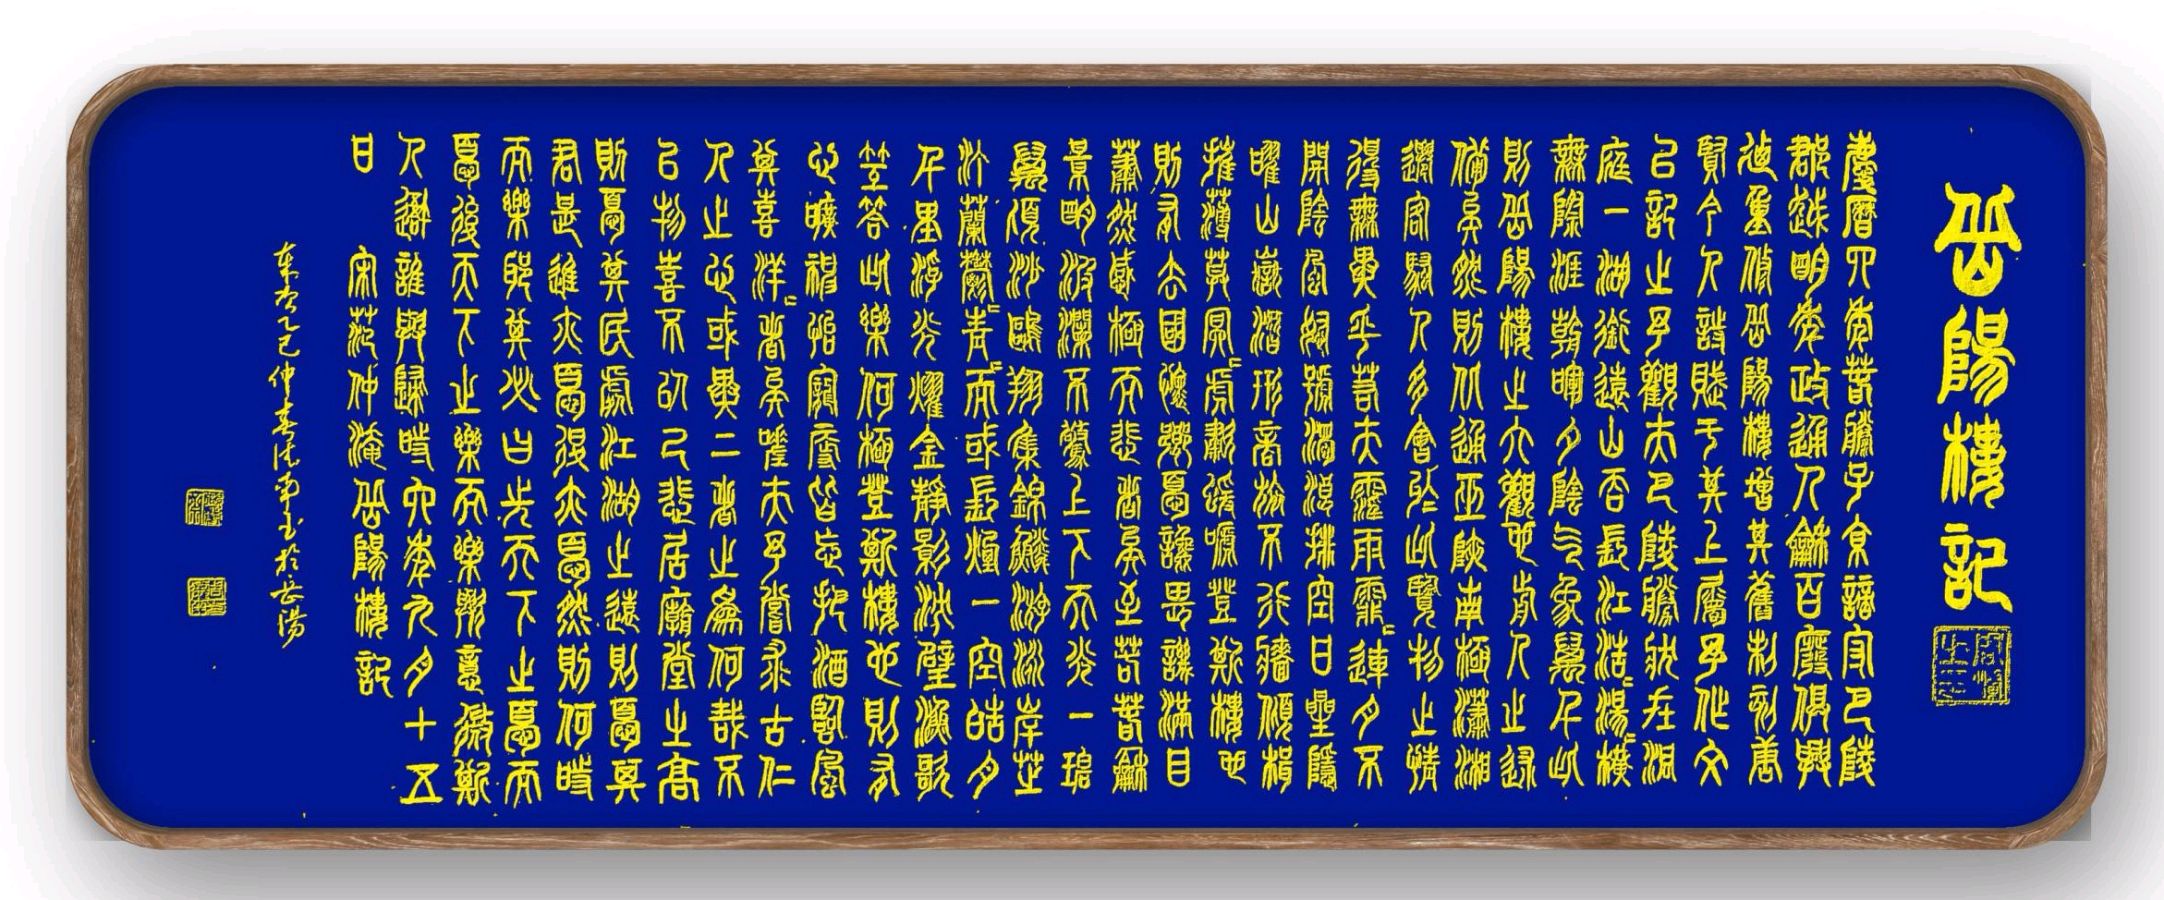 岳陽樓記
慶曆四年春滕子京謫守巴陵
郡越明年政通人和百廢俱興
廼重修岳陽樓增其舊制刻唐
賢今人詩賦于其上屬予作文
以記之予觀夫巴陵勝狀在洞
庭一湖銜遠山吞長江浩〻湯〻橫
無際涯朝暉夕陰氣象萬千此
則岳陽樓之大觀也前人之述
備矣然則北通巫峽南極瀟湘
遷客騷人多會於此覽物之情
得無異乎若夫霪雨霏〻連月不
開陰風怒號濁浪排空日星隱
曜山嶽潛形商旅不行檣傾楫
摧薄莫冥〻虎嘯猨啼登斯樓也
則有去國懷鄉憂讒畏譏滿目
蕭然感極而悲者矣至若春和
景明波瀾不驚上下天光一碧
萬頃沙鷗翔集錦鱗游泳岸芷
汀蘭鬱〻青〻而或長煙一空皓月
千里浮光耀金靜影沈璧漁歌
笠答此樂何極登斯樓也則有
心曠神怡寵辱皆忘把酒臨風
其喜洋〻者矣嗟夫予嘗求古仁
人之心或異二者之為何哉不
以物喜不以己悲居廟堂之高
則憂其民處江湖之遠則憂其
君是進亦憂退亦憂然則何時
而樂耶其必曰先天下之憂而
憂後天下之樂而樂歟意微斯
人吾誰與歸時六年九月十五
日 宋范仲淹岳陽樓記
乙巳仲春 書於岳陽